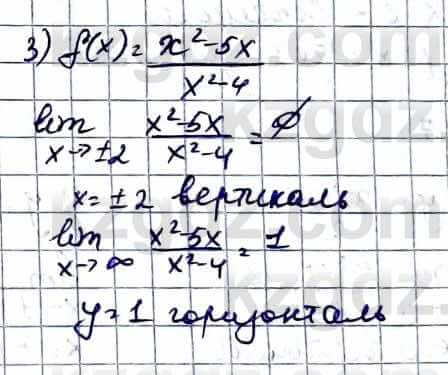 3) f(x) = x²-5x / x²-4
lim x→±2 x²-5x / x²-4 = ∅
x = ±2 вертикаль
lim x→∞ x²-5x / x²-4 = 1
y=1 горизонталь